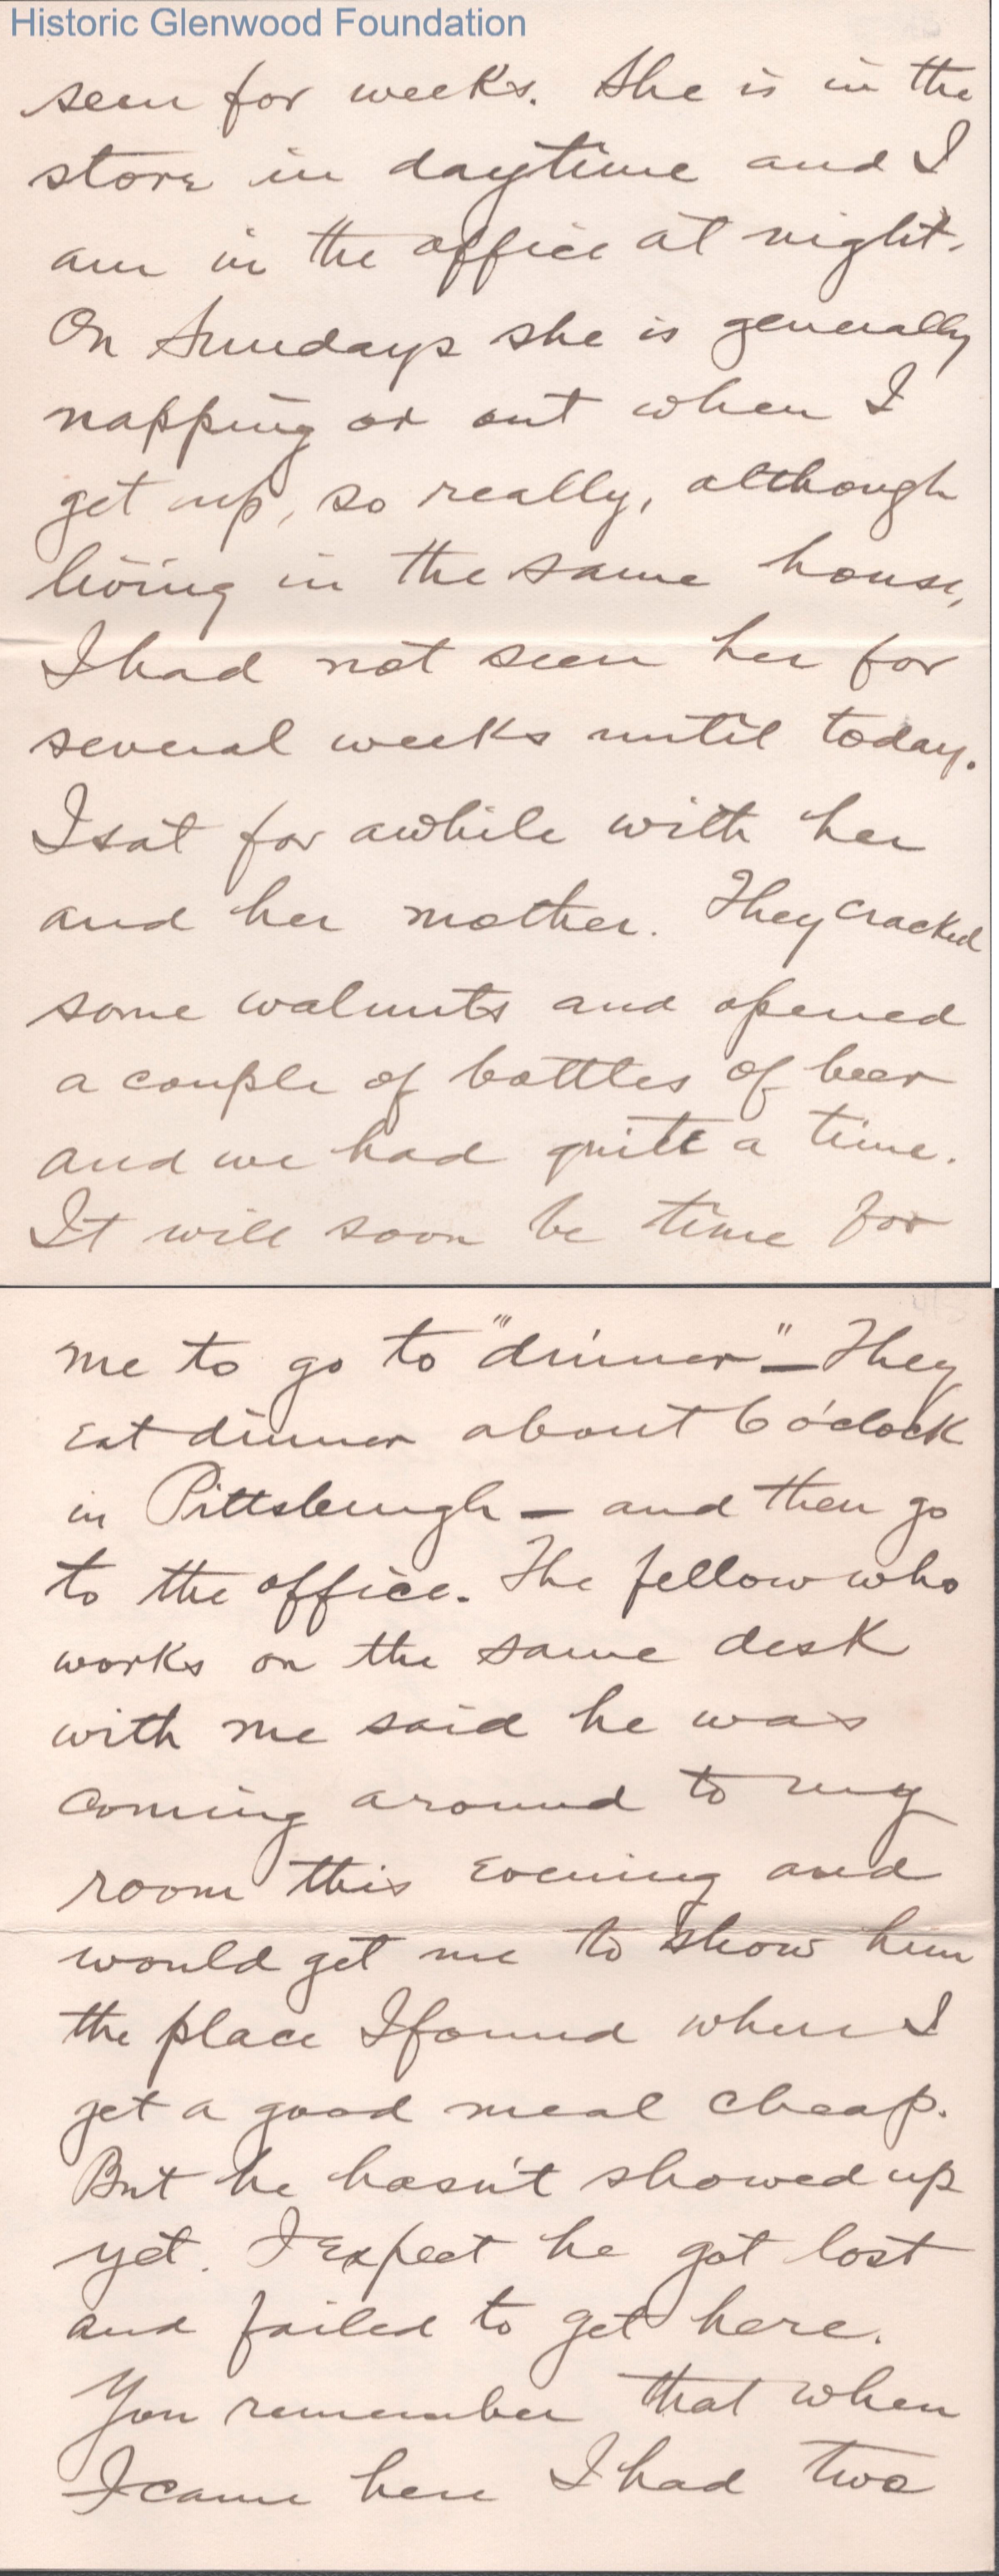 Historic Glenwood Foundation
seen for weeks. She is in the
store in daytime and I
am in the office at night.
On Sundays she is generally
napping or out when I
get up, so really, although
living in the same house,
I had not seen her for
several weeks until today.
I sat for awhile with her
and her mother. They cracked
some walnuts and opened
a couple of bottles of beer
and we had quite a time.
It will soon be time for
me to go to "dinner" — They
eat dinner about 6 o'clock
in Pittsburgh — and then go
to the office. The fellow who
works on the same desk
with me said he was
coming around to my
room this evening and
would get me to show him
the place I found where I
get a good meal cheap.
But he hasn't showed up
yet. I expect he got lost
and failed to get here.
You remember that when
I came here I had two